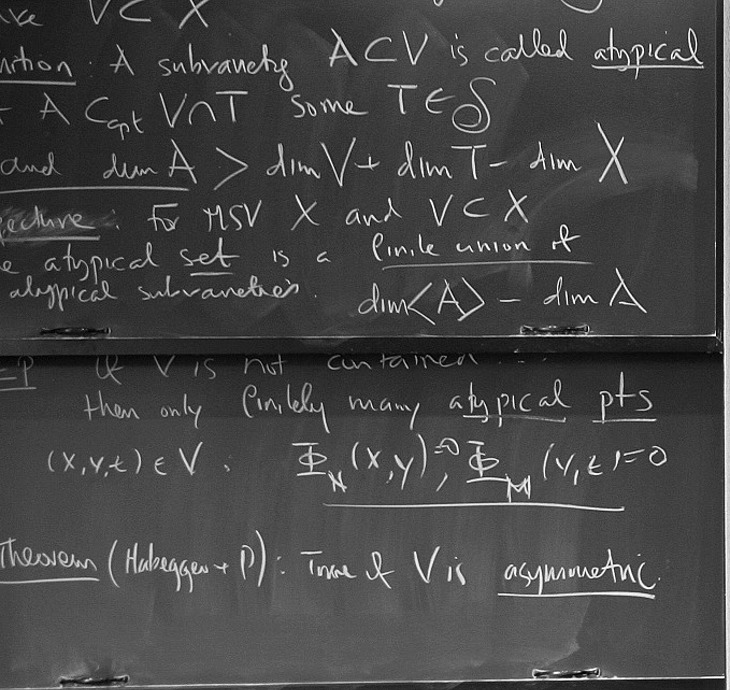 V ⊂ X
ition : A subvariety A ⊂ V is called atypical
A ⊂cpt V∩T some T ∈ S
and dim A > dim V + dim T - dim X
ecture : For MSV X and V ⊂ X
e atypical set is a finite union of
atypical subvarieties. dim<A> - dim A
EP If V is not contained ...
then only finitely many atypical pts
(x,y,z) ∈ V : Φ_N (x,y)=0, Φ_M (y,z)=0
Theorem (Habegger + P) : True if V is asymmetric.